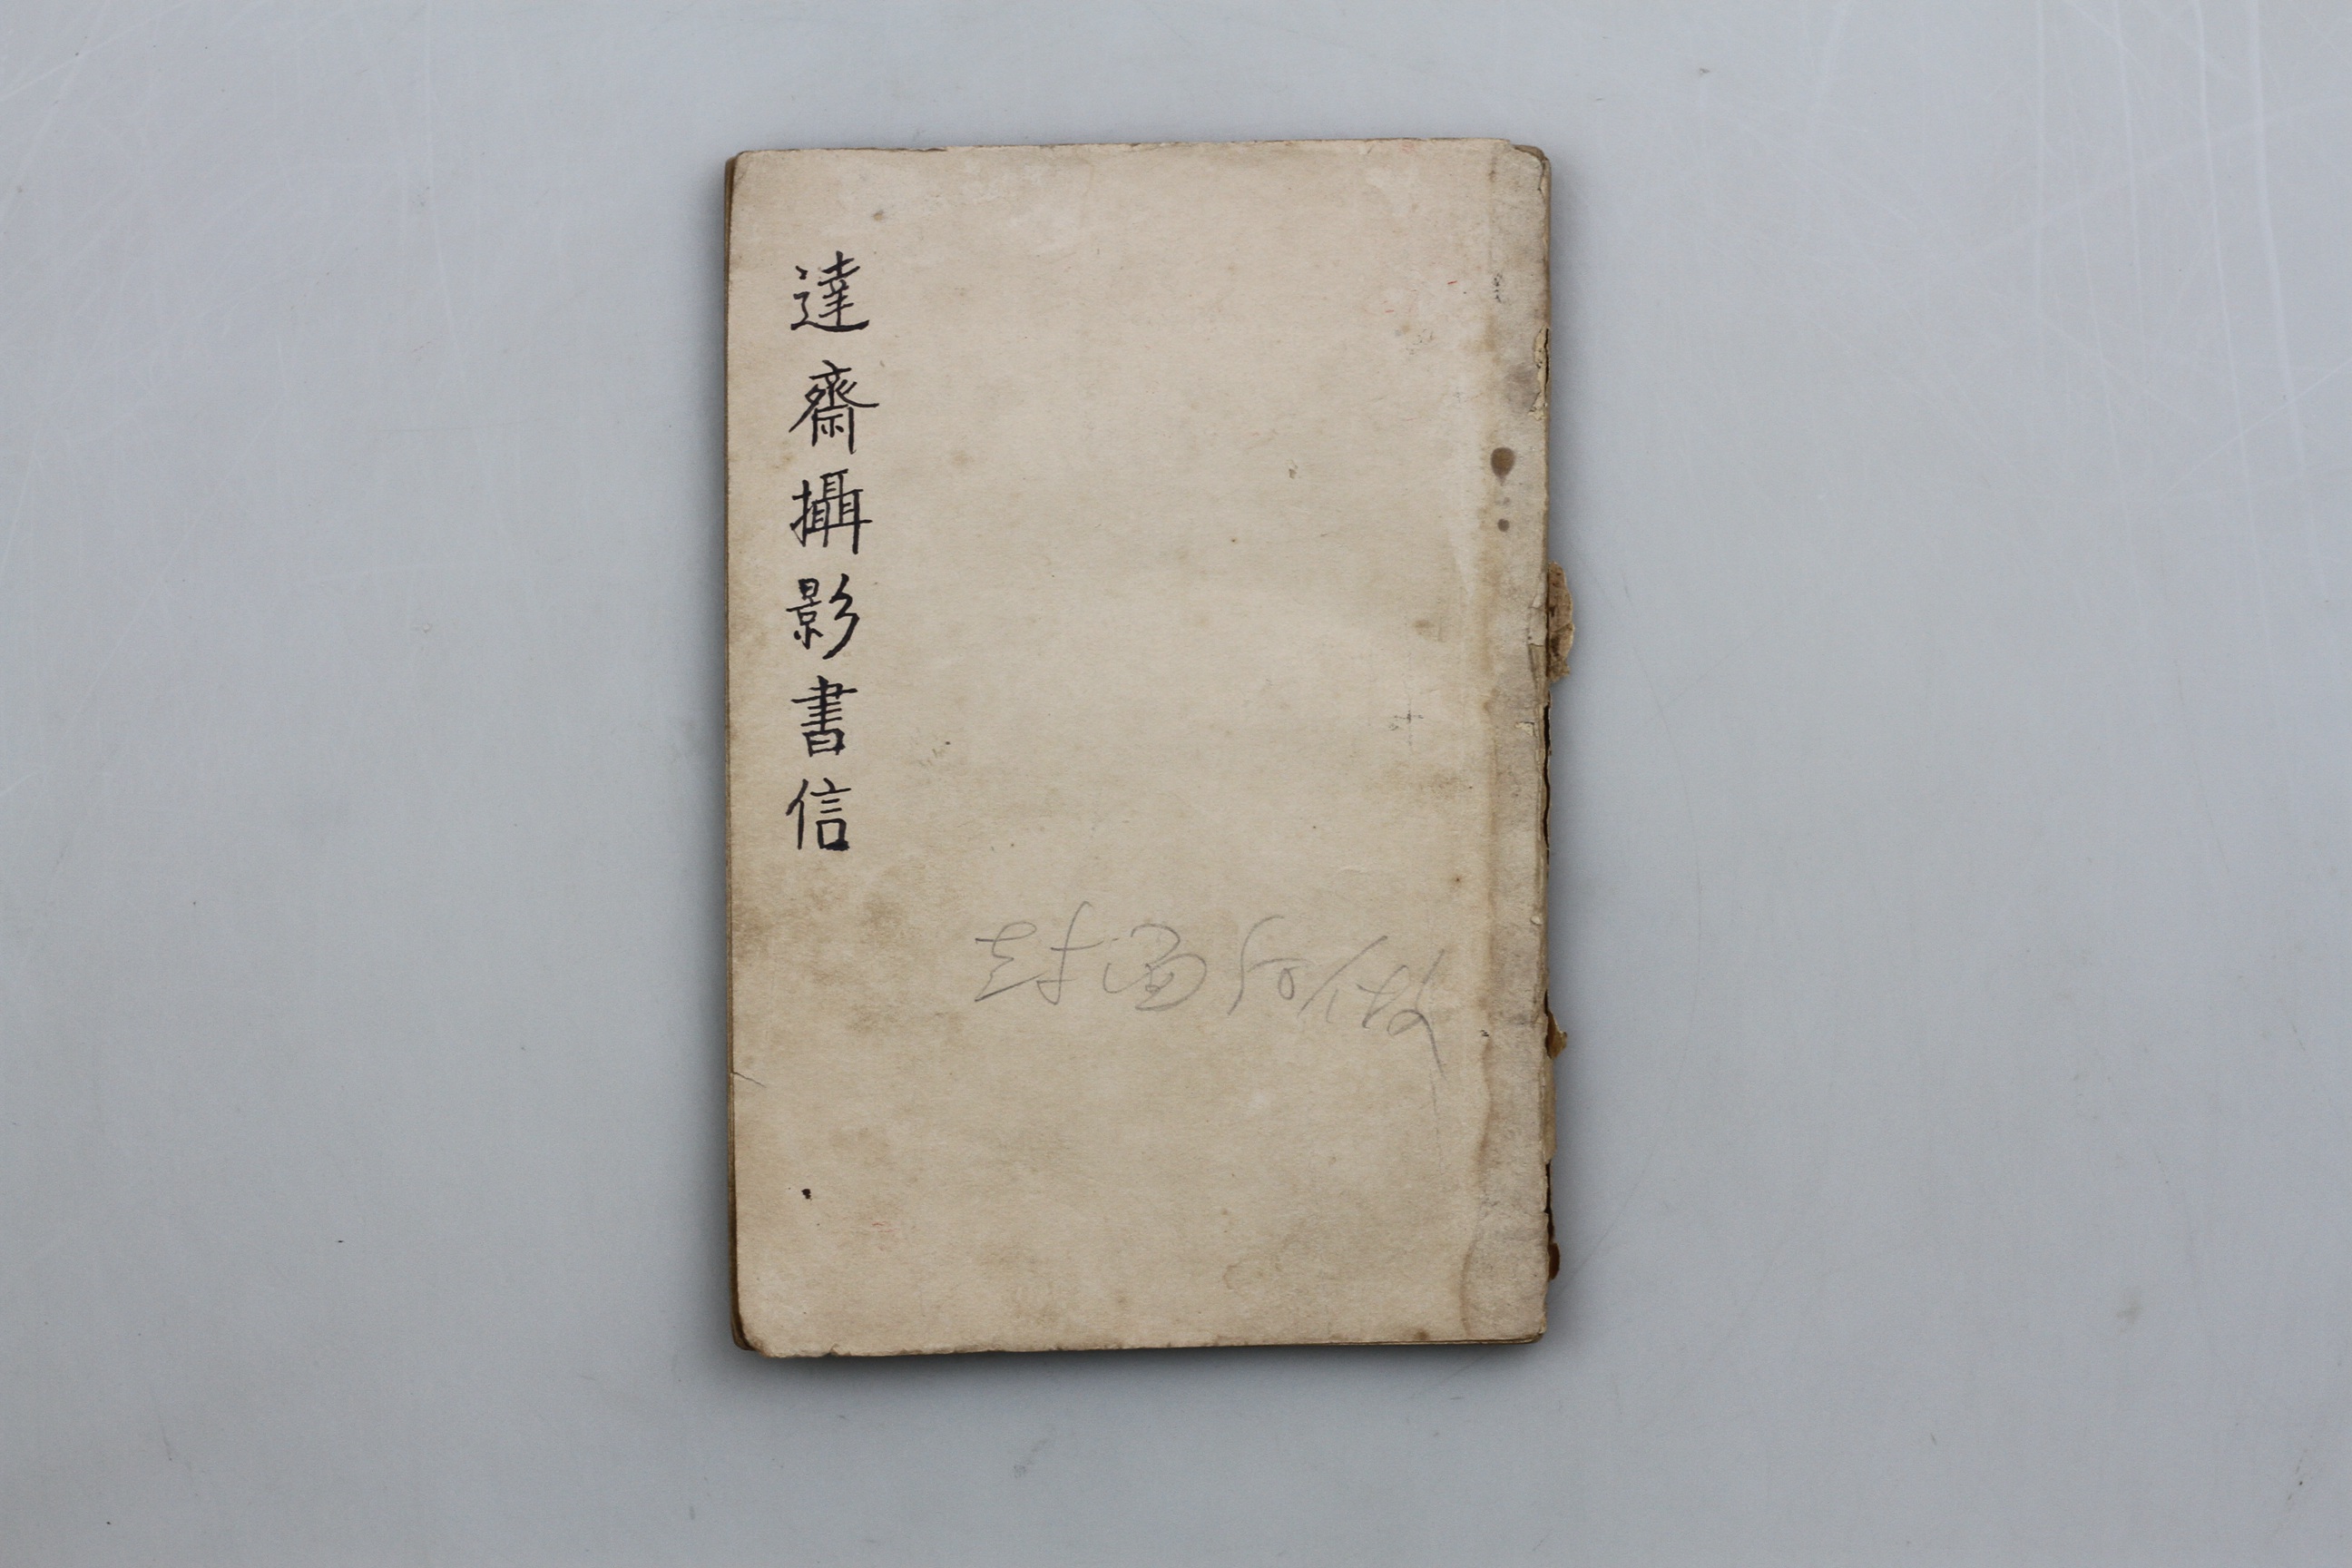 達齋攝影書信
封面可做